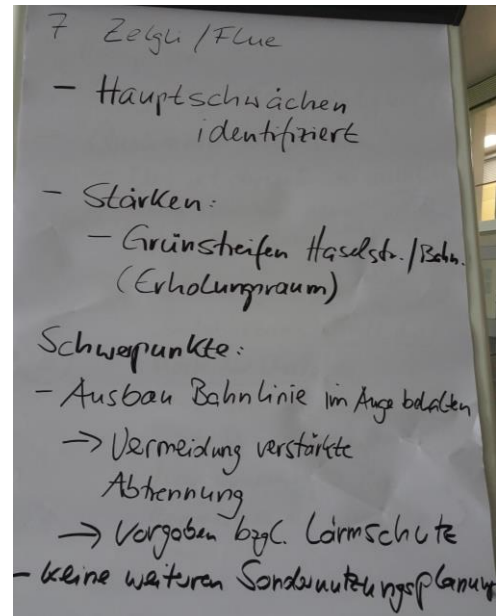 7 Zelgli/Flue
- Hauptschwächen
identifiziert
- Stärken:
- Grünstreifen Haselstr./Bahn.
(Erholungsraum)
Schwerpunkte:
- Ausbau Bahnlinie im Auge behalten
→ Vermeidung verstärkte
Abtrennung
→ Vorgaben bzgl. Lärmschutz
- keine weiteren Sondernutzungsplanung